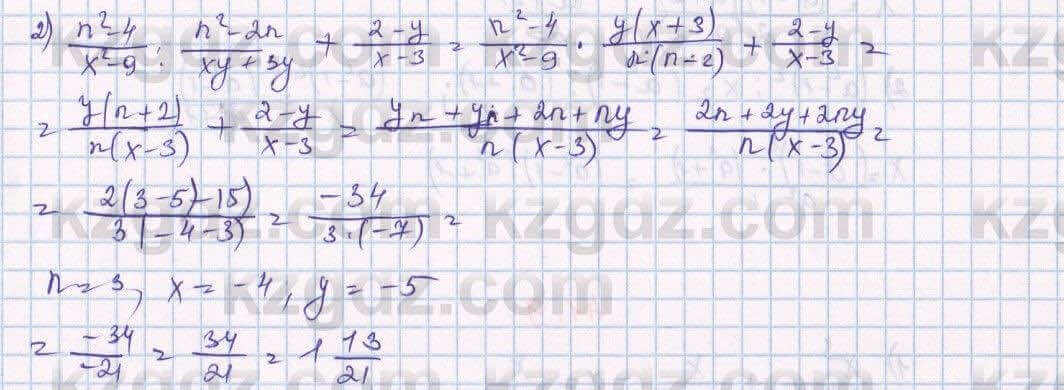 2) (n²-4)/(x²-9) : (n²-2n)/(xy+3y) + (2-y)/(x-3) = (n²-4)/(x²-9) · y(x+3)/(n·(n-2)) + (2-y)/(x-3) =
= y(n+2)/(n(x-3)) + (2-y)/(x-3) = (yn+yn+2n+ny)/(n(x-3)) = (2n+2y+2ny)/(n(x-3)) =
= (2(3-5)-15)/(3(-4-3)) = -34/(3·(-7)) =
n=3, x=-4, y=-5
= -34/-21 = 34/21 = 1 13/21
kzgdz.com